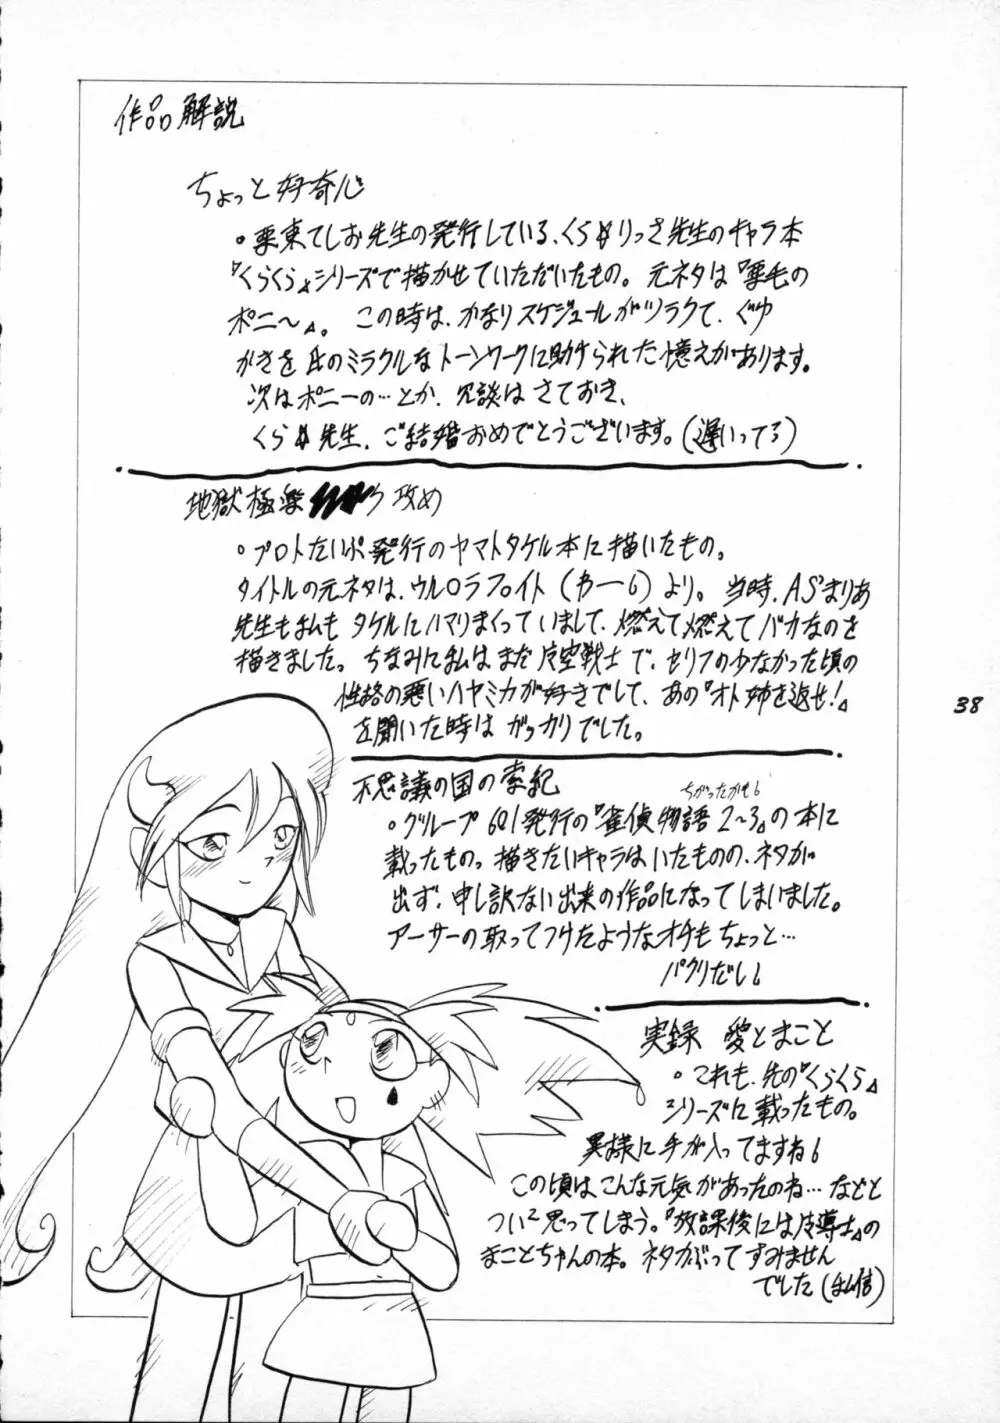 作品解説
ちょっと好奇心
・栗東てしお先生の発行している、くら☆りっさ先生のキャラ本
『くらくら』シリーズで描かせていただいたもの。元ネタは『栗毛の
ポニ〜』。この時は、かなりスケジュールがツラクて、ぐゆ
がさを氏のミラクルなトーンワークに助けられた憶えがあります。
次はポニーの…とか、冗談はさておき、
くら☆先生、ご結婚おめでとうございます。(遅いってる)
地獄極楽 攻め
・プロトたいぷ発行のヤマトタケル本に描いたもの。
タイトルの元ネタは、ウルロラファイト(わー6)より。当時、AS'まりあ
先生も私もタケルにハマりまくっていまして、燃えて燃えてバカなのを
描きました。ちなみに私はまだ時空戦士で、セリフの少なかった頃の
性格の悪いハヤミカが好きでして、あの『オト姉を返せ!』
を聞いた時はガッカリでした。
不思議の国の索紀
ちがったかも6
・グループ601発行の『雀偵物語2〜3』の本に
載ったもの。描きたいキャラはいたものの、ネタが
出ず、申し訳ない出来の作品になってしまいました。
アーサーの取ってつけたようなオチもちょっと…
パクリだし6
実録 愛とまこと
・これも、先の『くらくら』
シリーズに載ったもの。
異様に手が入ってますね6
この頃はこんな元気があったのね…などと
つい2思ってしまう。『放課後には導士』の
まことちゃんの本。ネタかぶってすみません
でした(私信)
38